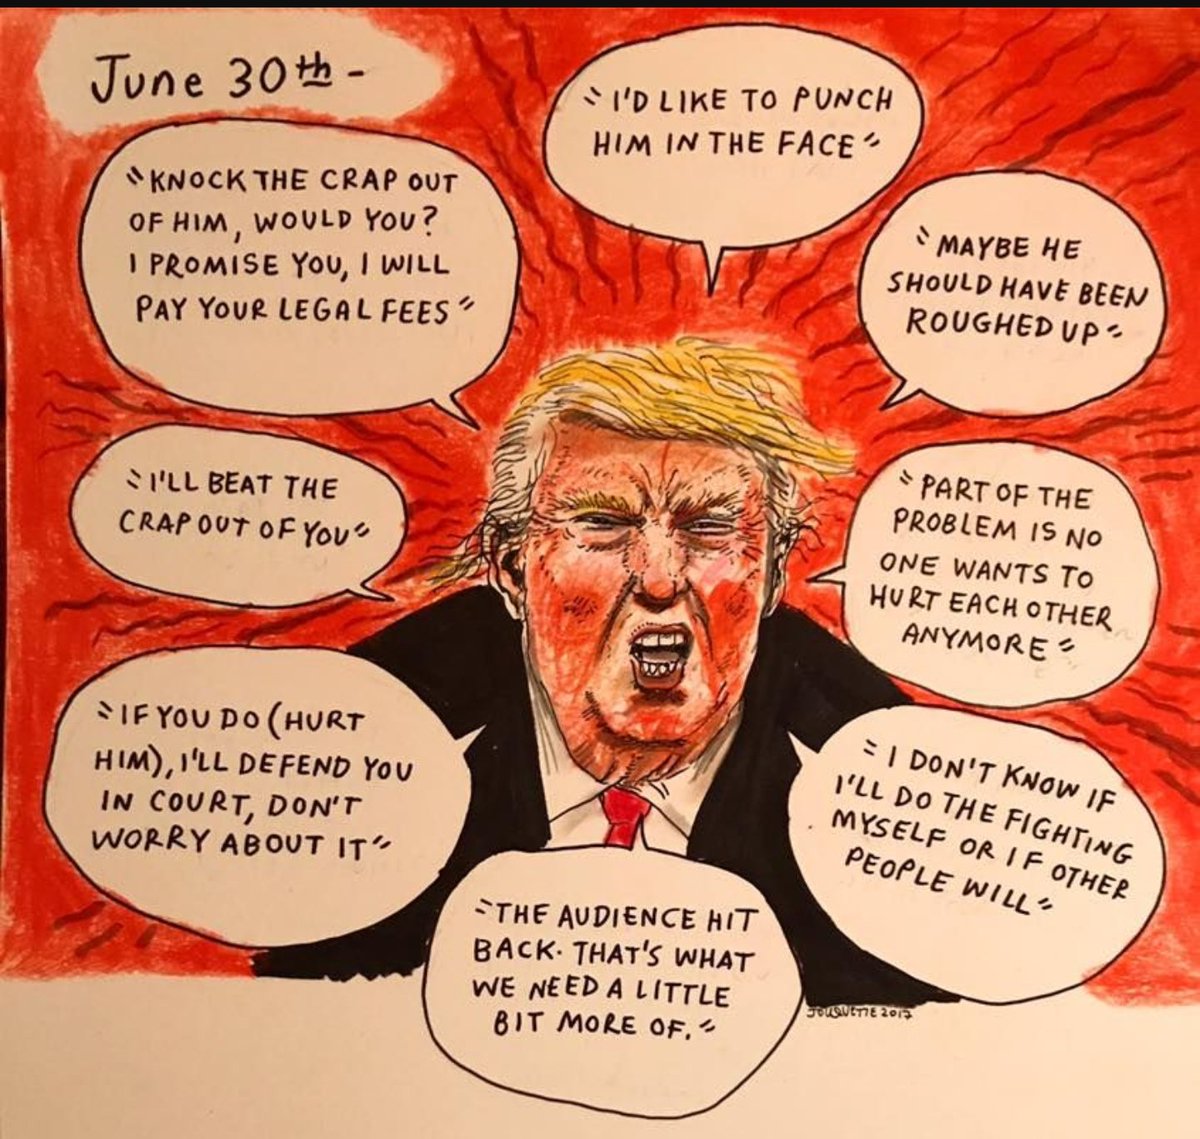 June 30th -
"I'D LIKE TO PUNCH
HIM IN THE FACE"
"KNOCK THE CRAP OUT
OF HIM, WOULD YOU?
I PROMISE YOU, I WILL
PAY YOUR LEGAL FEES"
"MAYBE HE
SHOULD HAVE BEEN
ROUGHED UP"
"I'LL BEAT THE
CRAP OUT OF YOU"
"PART OF THE
PROBLEM IS NO
ONE WANTS TO
HURT EACH OTHER
ANYMORE"
"IF YOU DO (HURT
HIM), I'LL DEFEND YOU
IN COURT, DON'T
WORRY ABOUT IT"
"I DON'T KNOW IF
I'LL DO THE FIGHTING
MYSELF OR IF OTHER
PEOPLE WILL"
"THE AUDIENCE HIT
BACK. THAT'S WHAT
WE NEED A LITTLE
BIT MORE OF."
2017